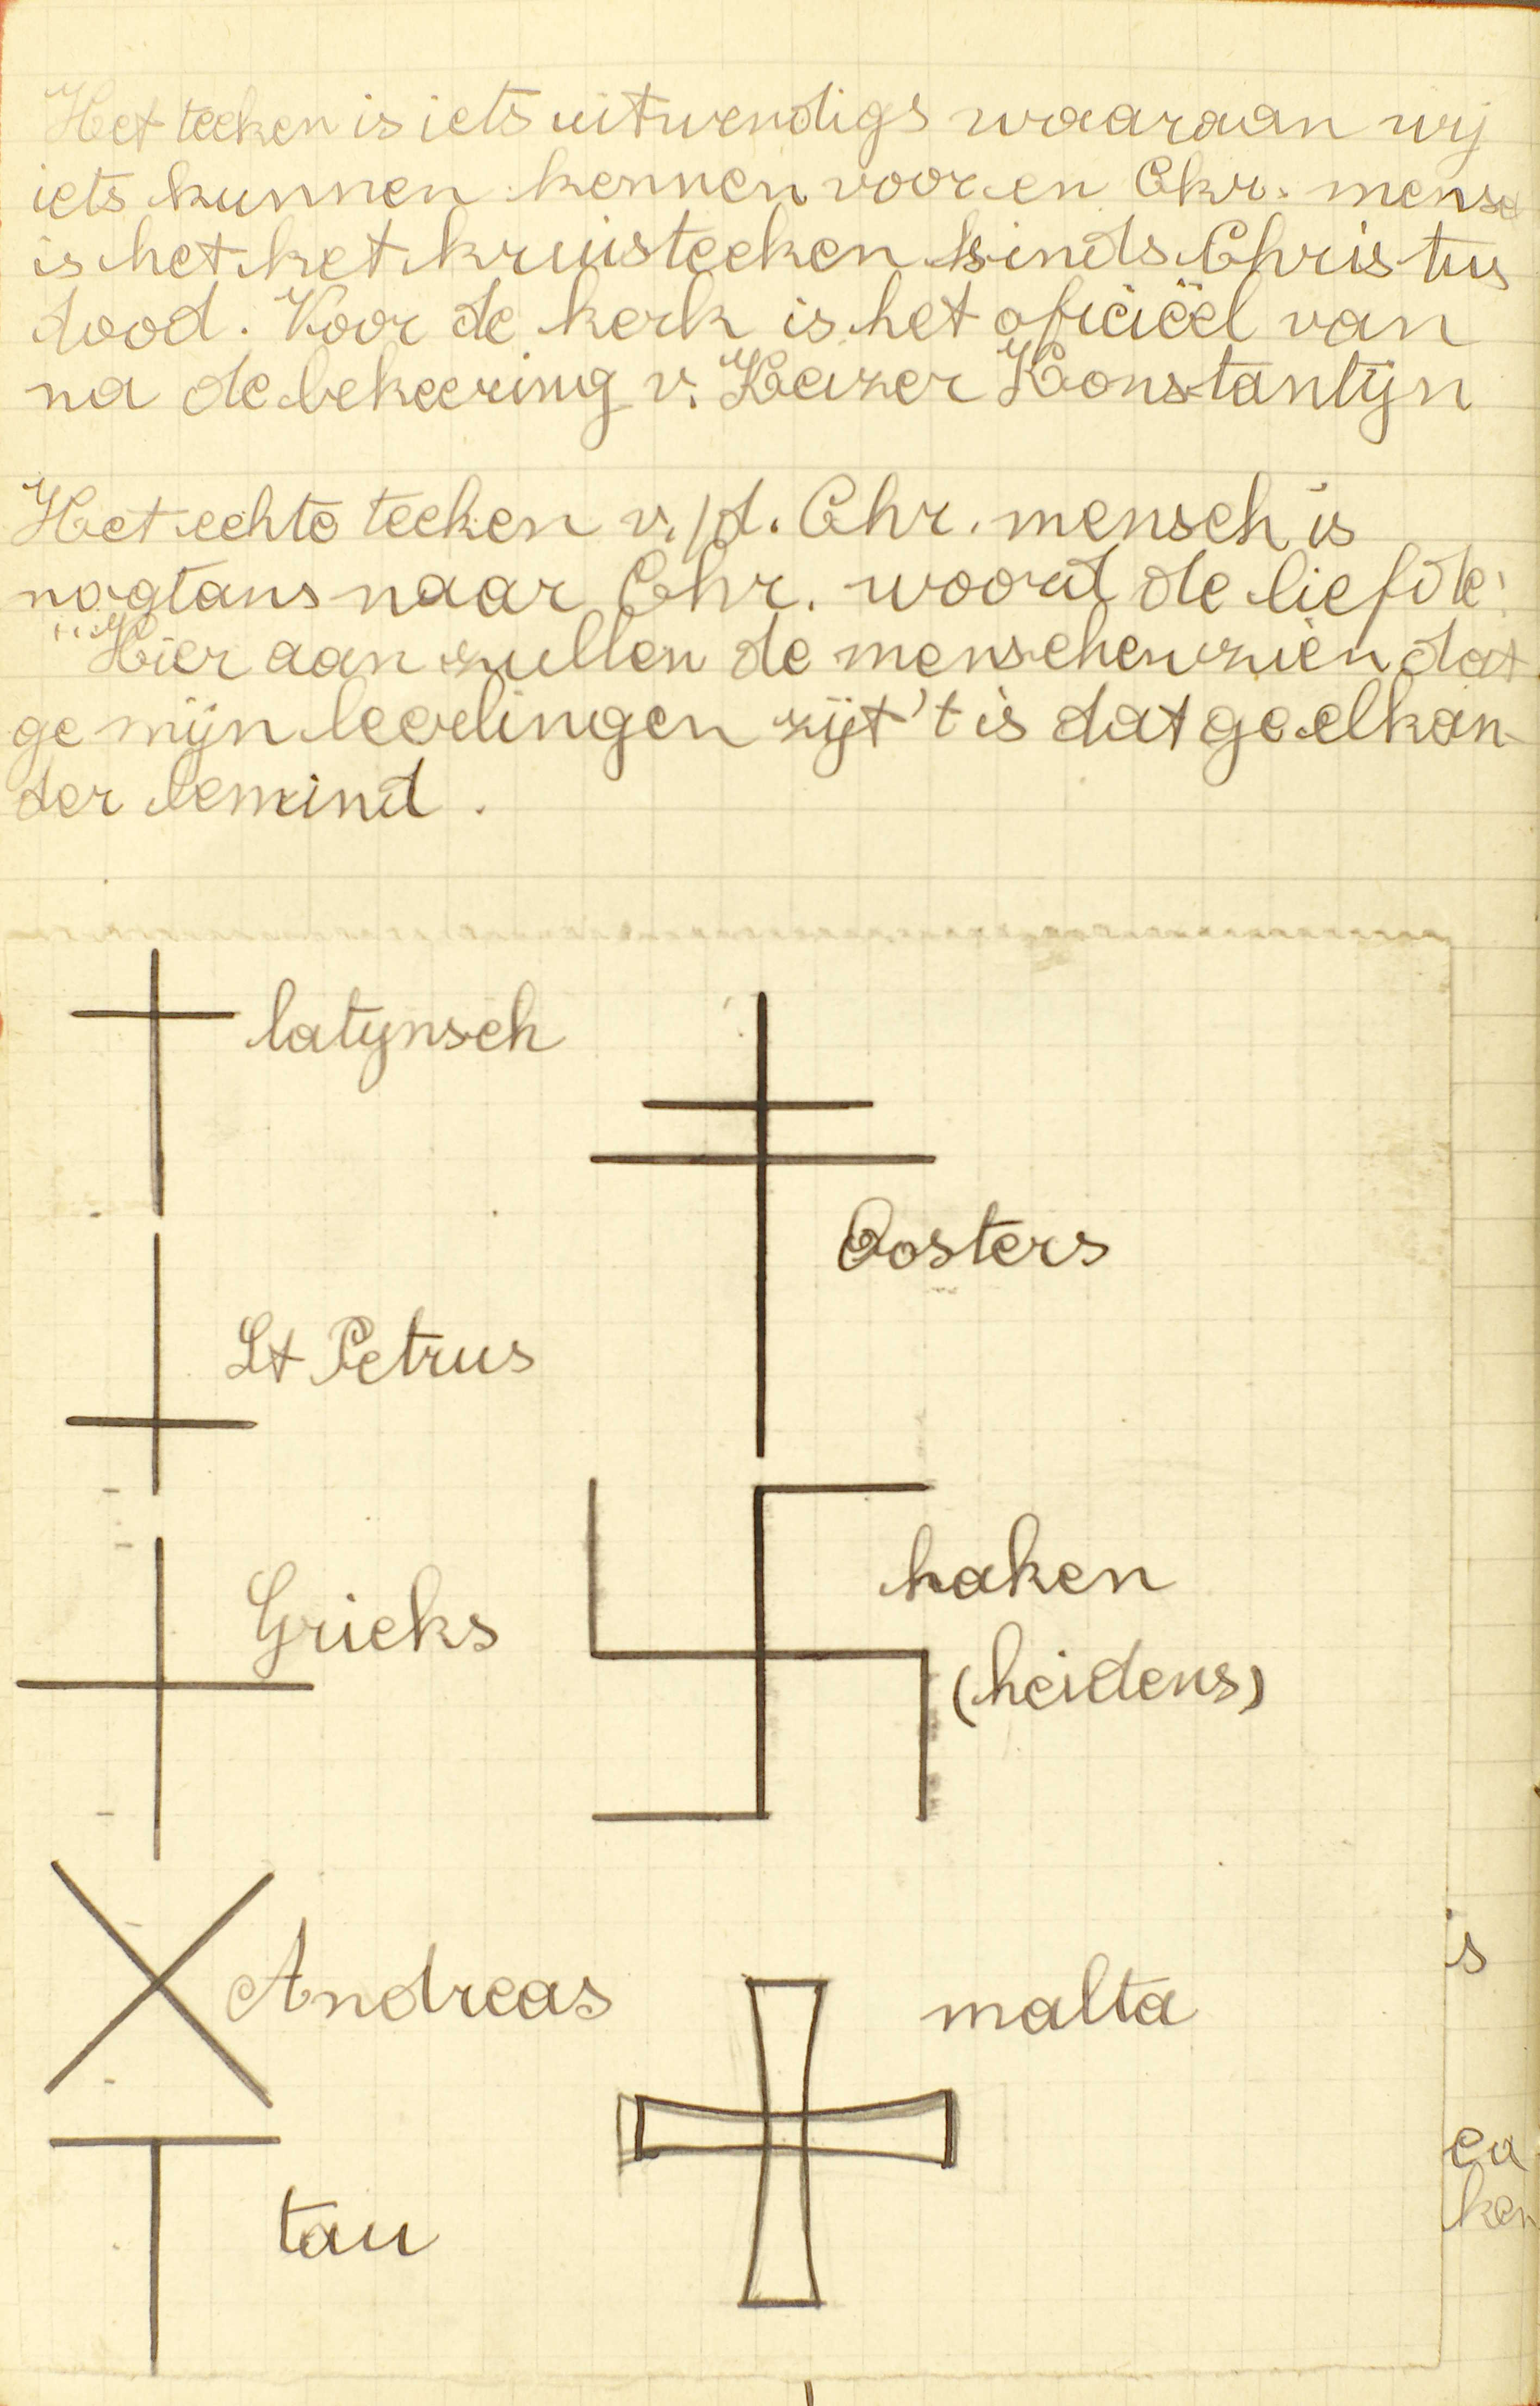 Het teeken is iets uitwendigs waaraan wij
iets kunnen kennen voor en Chr. mensch
is het het kruisteeken sinds Christus
dood. Voor de kerk is het oficiëel van
na de bekeering v. Keizer Konstantijn
Het echte teeken v./d. Chr. mensch is
nogtans naar Chr. woord de liefde:
"Hier aan zullen de menschen zien dat
ge mijn leerlingen zijt 't is dat ge elkan-
der bemind.
latynsch
Oosters
St Petrus
haken
Grieks
(heidens)
Andreas
malta
is
tau
en
ken